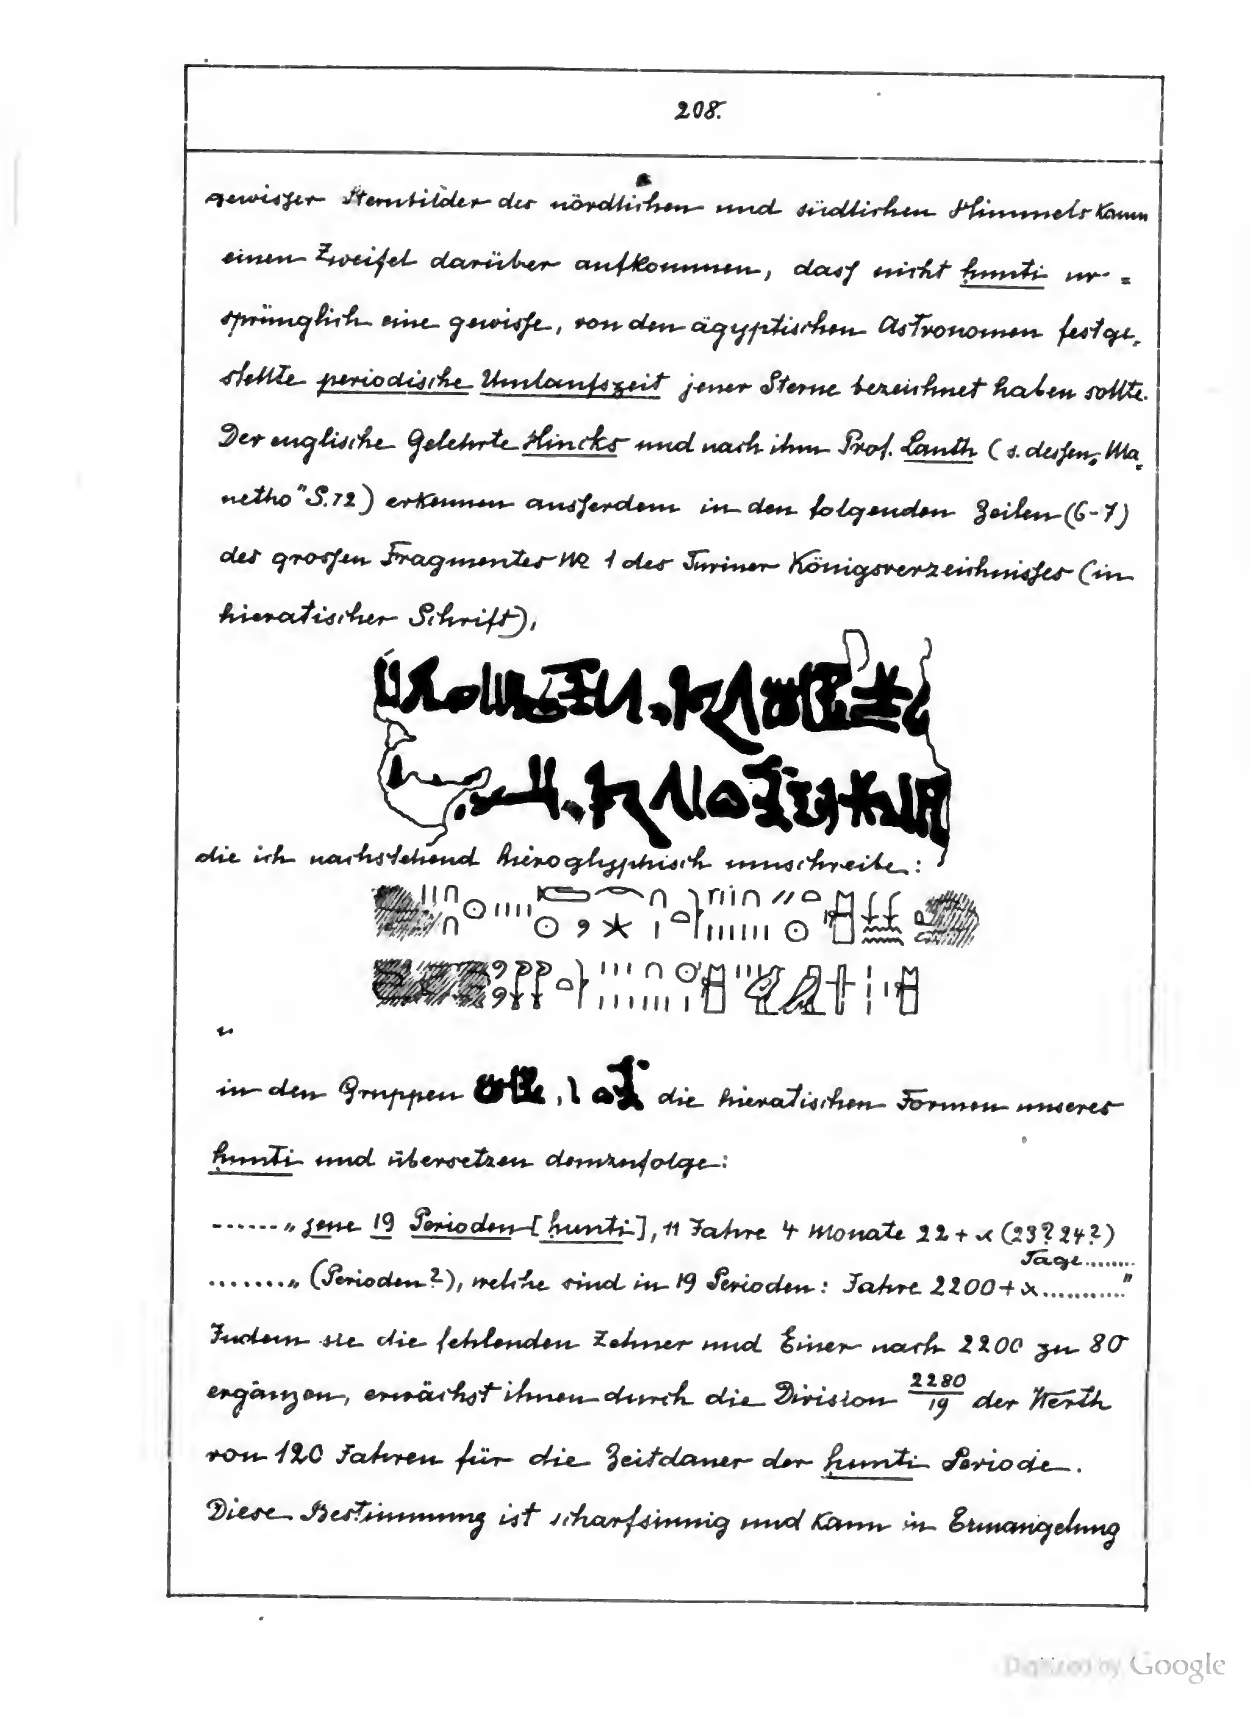 208.
gewisser Sternbilder des nördlichen und südlichen Himmels kaum
einen Zweifel darüber aufkommen, dass nicht ḥunti ur-
sprünglich eine gewisse, von den ägyptischen Astronomen festge-
stellte periodische Umlaufszeit jener Sterne bezeichnet haben sollte.
Der englische Gelehrte Hincks und nach ihm Prof. Lauth (s. dessen „Ma-
netho" S. 72) erkennen ausserdem in den folgenden Zeilen (6-7)
des grossen Fragmentes No 1 des Turiner Königsverzeichnisses (in
hieratischer Schrift),
die ich nachstehend hieroglyphisch umschreibe:
in den Gruppen , die hieratischen Formen unseres
ḥunti und übersetzen demzufolge:
......„jene 19 Perioden [ḥunti], 11 Jahre 4 Monate 22 + x (23? 24?)
Tage.......
.......„(Perioden?), welche sind in 19 Perioden: Jahre 2200 + x..........."
Indem sie die fehlenden Zehner und Einer nach 2200 zu 80
ergänzen, erwächst ihnen durch die Division 2280/19 der Werth
von 120 Jahren für die Zeitdauer der ḥunti Periode.
Diese Bestimmung ist scharfsinnig und kann in Ermangelung
Digitized by Google